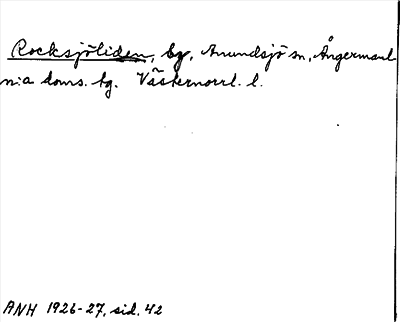 Rocksjöliden, by, Anundsjö sn, Ångermanl
n:a doms. bg. Västernorrl. l.
ANH 1926-27, sid. 42